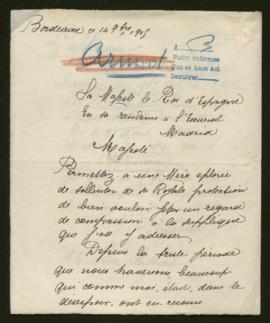 Bordeaux le 14 9bre 1915
Armand
Pedir informes
que se hace así.
Devolver
Sa Majesté le Roi d'Espagne
En sa résidence à l'Escurial
Madrid
Majesté
Permettez à une Mère éplorée
de solliciter de sa Royale protection
de bien vouloir jeter un regard
de compassion à la supplique
que j'ose y adresser.
Depuis la triste période
que nous traversons beaucoup
qui comme moi, était, dans le
désespoir, ont eu recours